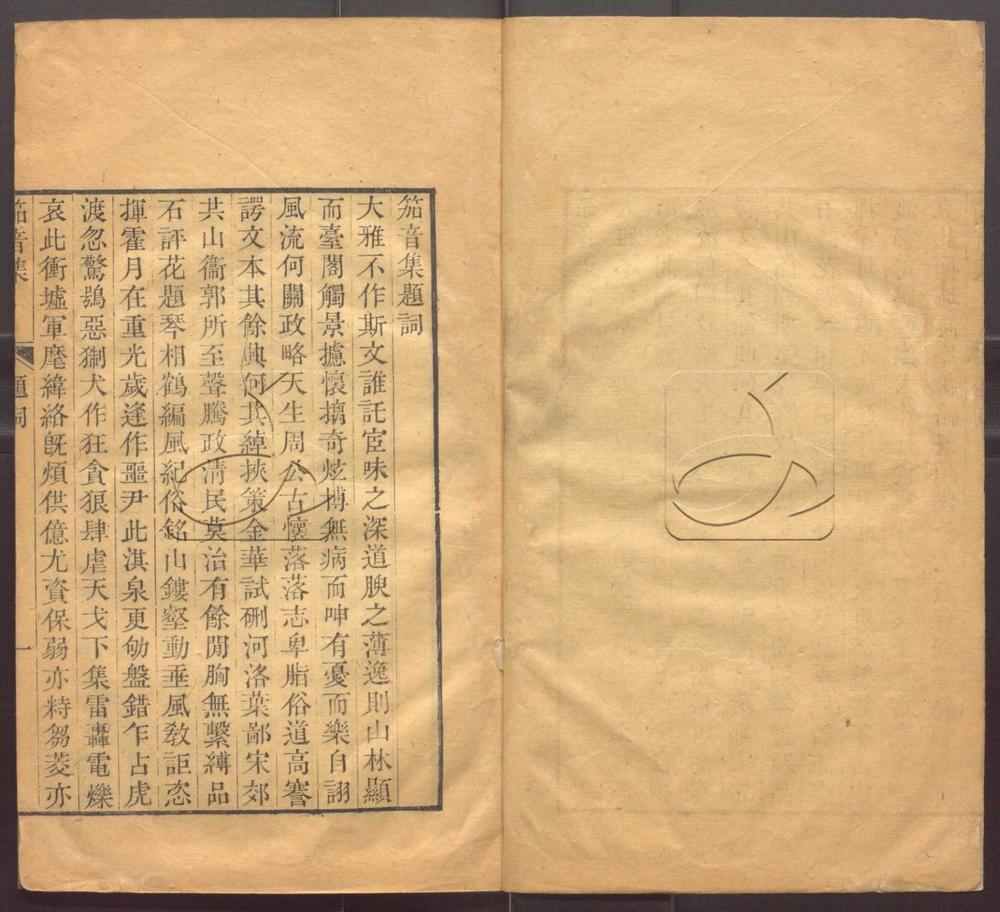 笳音集題詞
大雅不作斯文誰託宦味之深道腴之薄逸則山林顯
而臺閣觸景攄懷摛奇炫博無病而呻有憂而樂自詡
風流何關政略天生周公古懷落落志卑脂俗道高謇
諤文本其餘典何其綽挾策金華試硎河洛葉鄙宋郊
共山衞郭所至聲騰政淸民莫治有餘閒胸無繫縛品
石評花題琴相鶴編風紀俗銘山鏤壑動垂風敎詎恣
揮霍月在重光歲逢作噩尹此淇泉更劬盤錯乍占虎
渡忽驚鴞惡猘犬作狂貪狼肆虐天戈下集雷轟電爍
哀此衝墟軍麾緯絡旣煩供億尤資保弱亦恃芻茭亦
笳音集
題詞
一